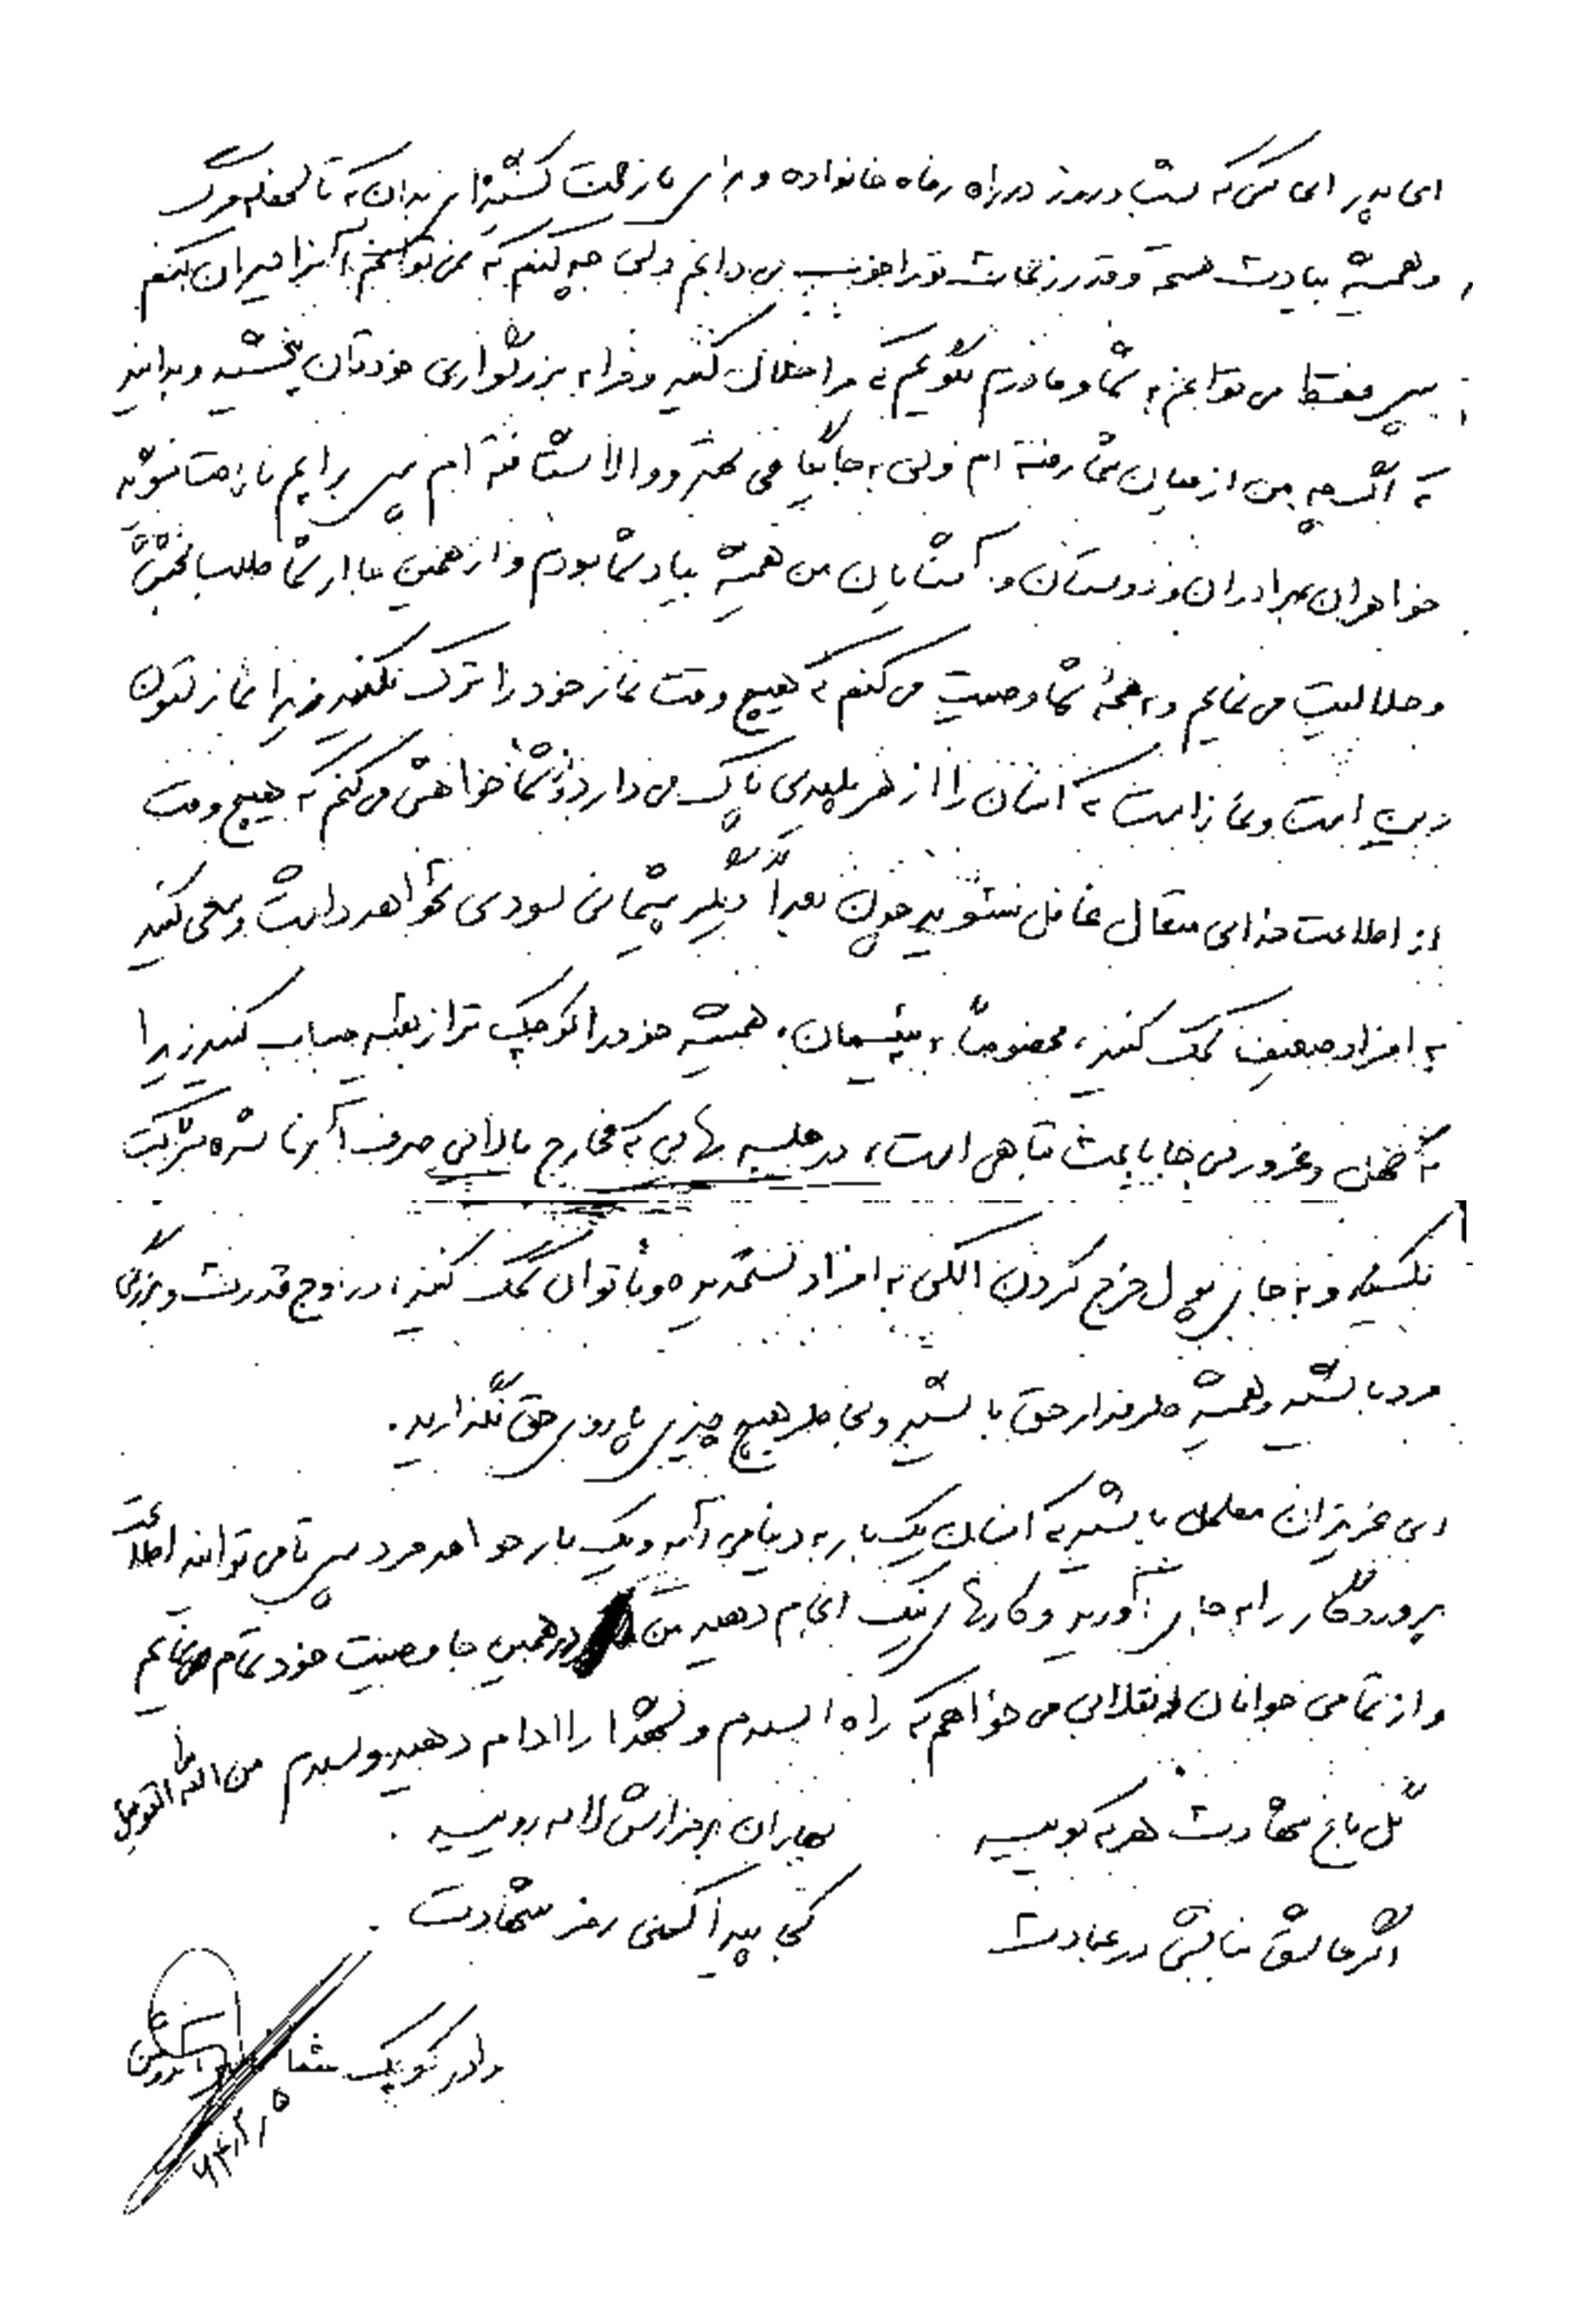 ای پدر ای کسی که شب و روز در راه رفاه خانواده و برای ما زحمت کشیده‌ای بدان که تا لحظه مرگ
و همیشه بیادت هستم و قدر زحمات تو را خوب می دانم ولی چه کنم که نمی توانم آنرا جبران بکنم
پس فقط می توانم به شما و مادرم بگویم که مرا حلال کنید و مرا به بزرگواری خودتان بخشید و بدانید
که اگر چه من از میان شما رفته ام ولی به جایگاهی بهتر و والا شتافته ام پس برایم ناراحت نشوید
خواهران برادران و دوستان و آشنایان من همیشه بیاد شما بودم و از همین جا از شما طلب بخشش
و حلالیت می نمایم و به همهٔ شما وصیت می کنم که هیچ وقت نماز خود را ترک نکنید زیرا نماز ستون
دین است و نماز است که انسان را از هر پلیدی پاک می دارد و از شما خواهش می کنم که هیچ وقت
از اطاعت خدای متعال غافل نشوید چون بعداً دیگر پشیمانی سودی نخواهد داشت و سعی کنید
به افراد ضعیف کمک کنید، مخصوصاً به یتیمان، همیشه خود را کوچک تر از بقیه حساب کنید زیرا
تکبر و غرور بی جا باعث تباهی است، در جلسه هایی که مخارج بالائی صرف آنها شده شرکت
نکنید و به جای پول خرج کردن الکی به افراد ستمدیده و ناتوان کمک کنید، در اوج قدرت و بزرگی
مرد باشید و همیشه طرفدار حق باشید و بخاطر هیچ چیزی پا روی حق نگذارید.
ای عزیزان مطمئن باشید که انسان یک بار به دنیا می آید و یک بار خواهد مرد پس تا می توانید اطاعت
پروردگار را به جای آورید و کارهای نیک انجام دهید من در همین جا وصیت خود تمام می نمایم
و از تمامی جوانان انقلابی می خواهم که راه اسلام و شهدا را ادامه دهید و السلام من الله التوفیق
گل باغ شهادت هر که بوسید بهاران بر مزارش لاله رویید.
اگر عاشق نباشی در عبادت کجی پیدا کنی رمز شهادت.
برادر کوچک شما